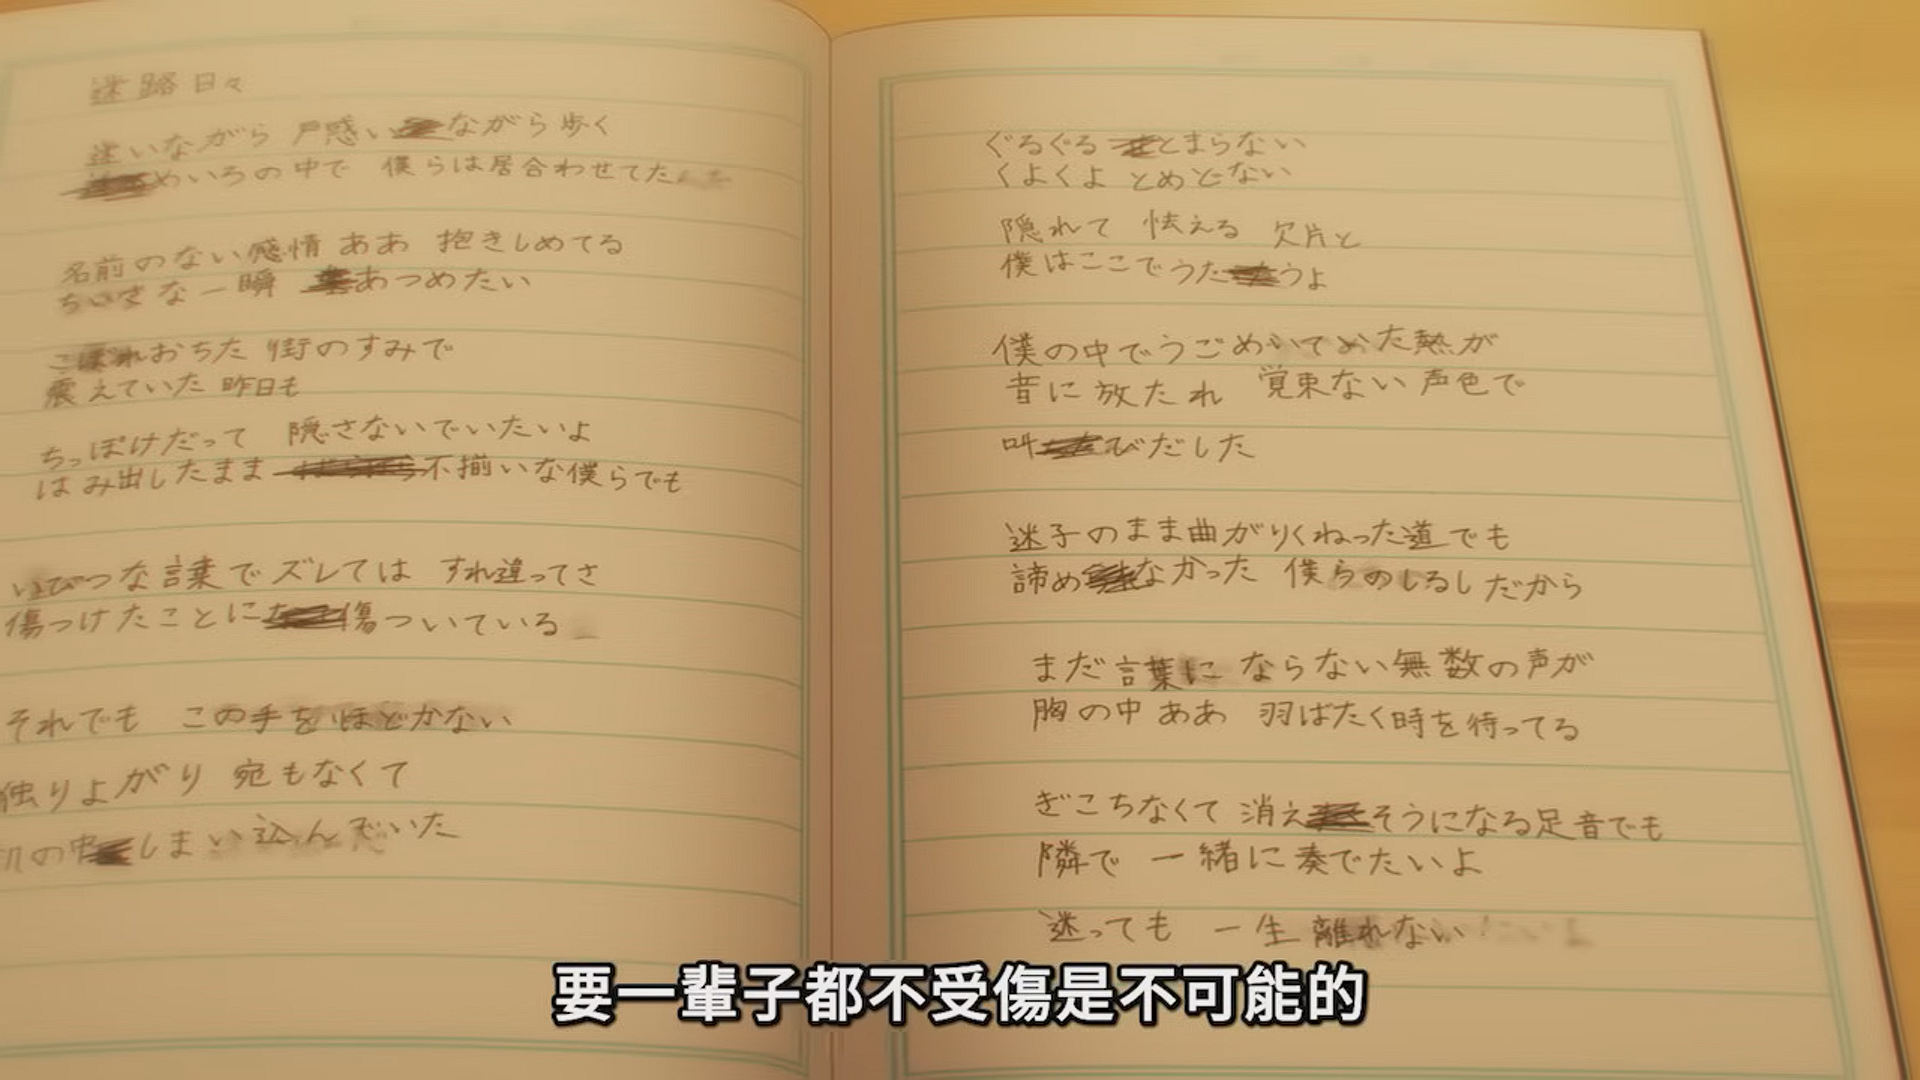 迷路日々
迷いながら 戸惑いながら歩く
めいろの中で 僕らは居合わせてた
名前のない感情 ああ 抱きしめてる
ちいさな一瞬 あつめたい
こぼれおちた 街のすみで
震えていた 昨日も
ちっぽけだって 隠さないでいたいよ
はみ出したまま 不揃いな僕らでも
いびつな言葉で ズレては すれ違ってさ
傷つけたことに傷ついている
それでも この手をほどかない
独りよがり 宛もなくて
机の中しまい込んでいた
ぐるぐる とまらない
くよくよ とめどない
隠れて 怯える 欠片と
僕はここでうたうよ
僕の中でうごめいてた熱が
音に放たれ 覚束ない声色で
叫びだした
迷子のまま曲がりくねった道でも
諦めなかった 僕らのしるしだから
まだ言葉に ならない無数の声が
胸の中 ああ 羽ばたく時を待ってる
ぎこちなくて 消えそうになる足音でも
隣で 一緒に奏でたいよ
迷っても 一生離れない
要一輩子都不受傷是不可能的